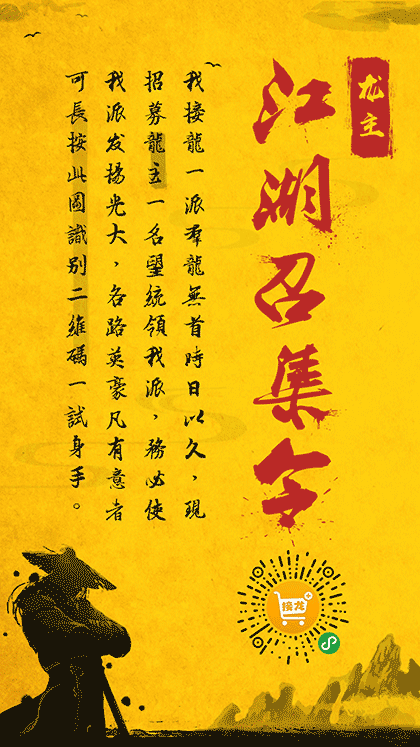 龙主
江湖召集令
我接龍一派羣龍無首時日以久，現
招募龍主一名望統領我派，務必使
我派发揚光大，各路英豪凡有意者
可長按此圖識别二維碼一試身手。
接龙